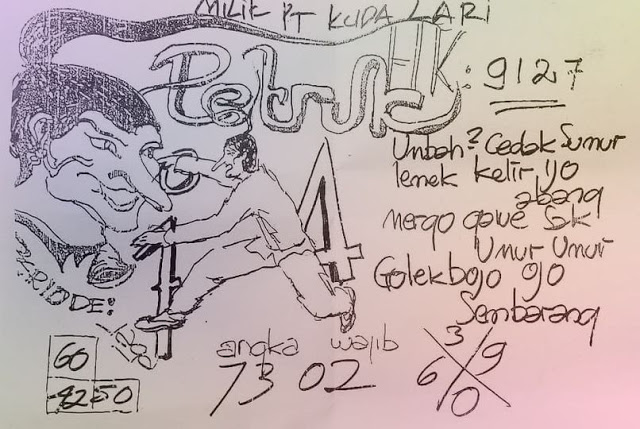 MILIK PT KUDA LARI
Petruk
HK: 9127
Umbah? Cedak Sumur
lemek kelir, yo
abang
mergo gawe Sak
Umur Umur
Golek bojo ojo
Sembarang
14
60
82 50
angka wajib
73 02
3
6 9
0